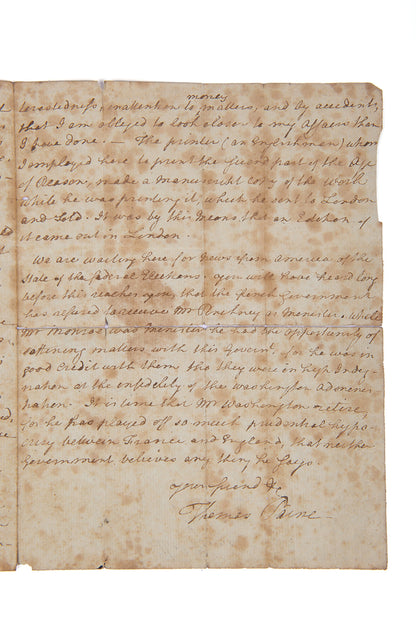 money
terestedness, inattention to matters, and by accident,
that I am obliged to look closer to my affairs than
I have done. — The printer (an Englishman) whom
I employed here to print the second part of the Age
of Reason, made a manuscript copy of the work
while he was printing it, which he sent to London
and sold. It was by this means that an Edition of
it came out in London.
We are waiting here for news from America of the
State of the federal Elections. You will have heard long
before this reaches you, that the french Government
has refused to receive Mr Pinckney as Minister. While
Mr Monroe was Minister he had the opportunity of
softening matters with this Governt. for he was in
good credit with them tho they were in high Indig-
nation at the infidelity of the Washington Adminis-
tration. It is time that Mr Washington retire,
for he has played off so much prudential hypo-
crisy between France and England, that neither
Government believes any thing he says.
Your friend &c
Thomas Paine